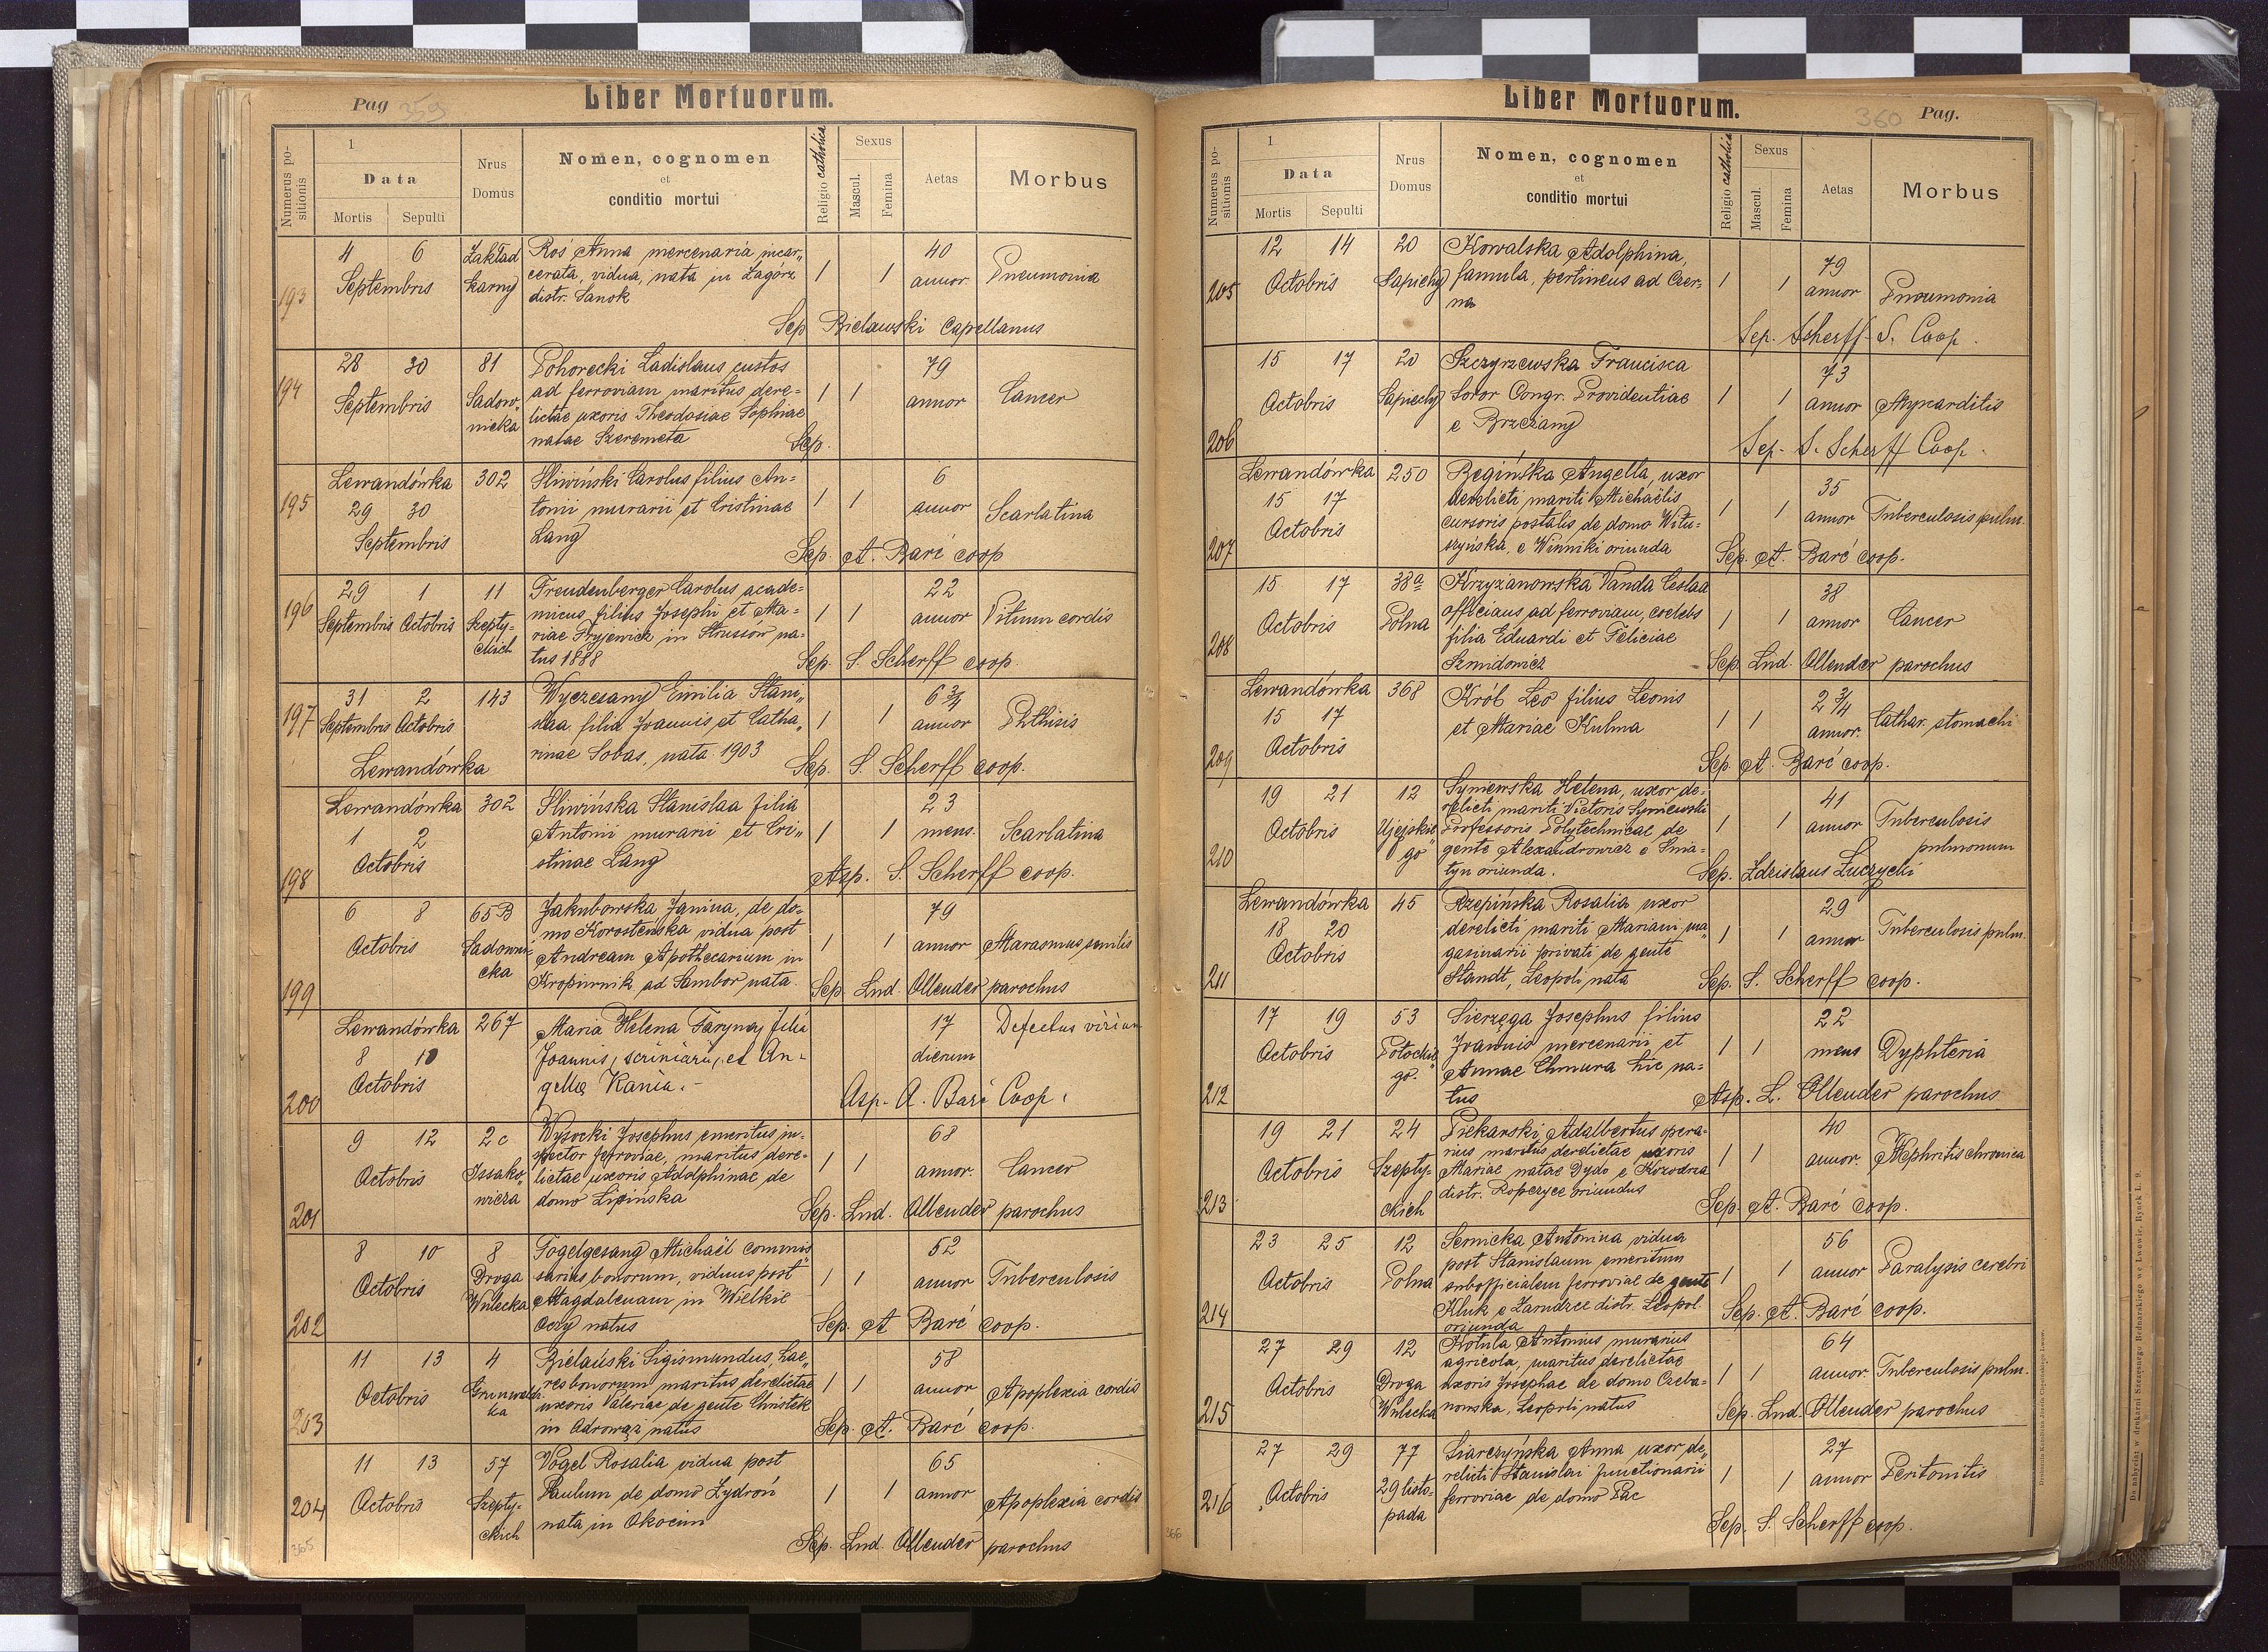 Pag 359
Liber Mortuorum.
Numerus positionis
1
Data
Mortis Sepulti
Nrus Domus
Nomen, cognomen
et
conditio mortui
Religio catholica
Sexus
Mascul. Femina
Aetas
Morbus
193
4 6 Zakład Roś Anna mercenaria incar„ 40
Septembris karny cerata, vidua, nata in Zagórz 1 1 annor. Pneumonia
distr. Sanok
Sep Bielawski Capellanus
194
28 30 81 Pohorecki Ladislaus custos 79
Septembris Sadow„ ad ferroviam maritus dere= 1 1 annor Cancer
nicka lictae uxoris Theodosiae Sophiae
natae Szeremeta Sep.
195
Lewandówka 302 Śliwiński Carolus filius An= 6
29 30 tonii murarii et Cristinae 1 1 annor Scarlatina
Septembris Lang
Sep. A. Barć coop
196
29 1 11 Freudenberger Carolus acade= 22
Septembris Octobris Szepty= micus filius Josephi et Ma= 1 1 annor Vitium cordis
ckich riae Hryjewicz in Strusów na=
tus 1888 Sep. S. Scherff coop.
197
31 2 143 Wyczesany Emilia Stani„ 6 3/4
Septembris Octobris slaa filia Joannis et Catha„ 1 1 annor Phthisis
Lewandówka rinae Sobas, nata 1903 Sep. S. Scherff coop.
198
Lewandówka 302 Śliwińska Stanislaa filia 23
1 2 Antonii murarii et Cri„ 1 1 mens. Scarlatina
Octobris stinae Lang Asp. S. Scherff coop.
199
6 8 65B Jakubowska Janina, de do= 79
Octobris Sadowni mo Korosteńska vidua post 1 1 annor Marasmus senilis
cka Andream Apothecarium in
Kropiwnik ad Sambor nata. Sep. Lud. Ollender parochus
200
Lewandówka 267 Maria Helena Tarynaj filia 17 Defectus virium
8 10 Joannis, scriniarii, et An- dierum
Octobris gellae Kania. -
Asp. A. Barć Coop.
201
9 12 2c Wysocki Josephus emeritus in= 68
Octobris Issako„ spector ferroviae, maritus dere= 1 1 annor. Cancer
wicza lictae uxoris Adolphinae de
domo Lipińska Sep. Lud. Ollender parochus
202
8 10 8 Fogelgesang Michaël commis 52
Octobris Droga sarius bonorum, viduus post 1 1 annor Tuberculosis
Wulecka Magdalenam in Wielkie
Oczy natus Sep. A Barć coop.
203
11 13 4 Bielański Sigismundus, hae„ 58
Octobris Grunwaldz res bonorum maritus derelictae 1 1 annor Apoplexia cordis
ka uxoris Valeriae de gente Christek
in Odrowąż natus Sep. A. Barć coop.
204
11 13 57 Vogel Rosalia vidua post 65
Octobris Szepty= Paulum de domo Zydroń 1 1 annor Apoplexia cordis
ckich nata in Okocim
Sep. Lud. Ollender parochus
365
360 Pag.
Liber Mortuorum.
Numerus positionis
1
Data
Mortis Sepulti
Nrus Domus
Nomen, cognomen
et
conditio mortui
Religio catholica
Sexus
Mascul. Femina
Aetas
Morbus
205
12 14 20 Kowalska Adolphina, 79
Octobris Sapiehy famula, pertinens ad Czer- 1 1 annor Pneumonia
na
Sep. Scherff S. Coop.
206
15 17 20 Szczyrzewska Francisca 73
Octobris Sapiechy Soror Congr. Providentiae 1 1 annor Myocarditis
e Brzeżany
Sep. S. Scherff Coop.
207
Lewandówka 250 Begińska Angella, uxor 35
15 17 derelicti mariti Michaëlis 1 1 annor Tuberculosis pulm.
Octobris cursoris postalis de domo Witu=
szyńska, e Winniki oriunda Sep. A. Barć coop.
208
15 17 38a Krzyżanowska Vanda Ceslaa 38
Octobris Polna officians ad ferroviam, coelebs 1 1 annor Cancer
filia Eduardi et Feliciae
Szmidowicz Sep. Lud. Ollender parochus
209
Lewandówka 368 Król Leo filius Leonis 2 3/4
15 17 et Mariae Kulma 1 1 annor. Cathar. stomachi
Octobris
Sep. A. Barć coop.
210
19 21 12 Syniewska Helena, uxor de= 41
Octobris Ujejskie„ relicti mariti Victoris Syniewski 1 1 annor Tuberculosis
go Professoris Polytechnicae de pulmonum
gente Alexandrowicz e Śnia=
tyn oriunda. Sep. Zdzislaus Łuczycki
211
Lewandówka 45 Rzepińska Rosalia uxor 29
18 20 derelicti mariti Mariani ma„ 1 1 annor Tuberculosis pulm.
Octobris gasinarii privati de gente
Standt, Leopoli nata Sep. S. Scherff coop.
212
17 19 53 Sierzęga Josephus filius 22
Octobris Potockie„ Joannis mercenarii et 1 1 mens Dyphteria
go. Annae Chmura hic na=
tus Asp. L. Ollender parochus
213
19 21 24 Piekarski Adalbertus opera= 40
Octobris Szepty= rius maritus derelictae uxoris 1 1 annor. Nephritis chronica
ckich Mariae natae Dydo e Kozodrza
distr. Ropczyce oriundus Sep. A. Barć coop.
214
23 25 12 Sernicka Antonina vidua 56
Octobris Polna post Stanislaum emeritum 1 1 annor Paralysis cerebri
subofficialem ferroviae de gente
Kluk e Zarudzce distr. Leopol. Sep. A. Barć coop.
oriunda
215
27 29 12 Kotula Antonius murarius 64
Octobris Droga agricola, maritus derelictae 1 1 annor. Tuberculosis pulm.
Wulecka uxoris Josephae de domo Czeba=
nowska, Leopoli natus Sep. Lud. Ollender parochus
216
27 29 77 Siarczyńska Anna uxor de„ 27
Octobris 29 listo= relicti Stanislai functionarii 1 1 annor Peritonitis
pada ferroviae de domo Pac
Sep. S. Scherff coop.
366
Do nabycia w drukarni Szczęsnego Bednarskiego we Lwowie, Rynek L. 9.